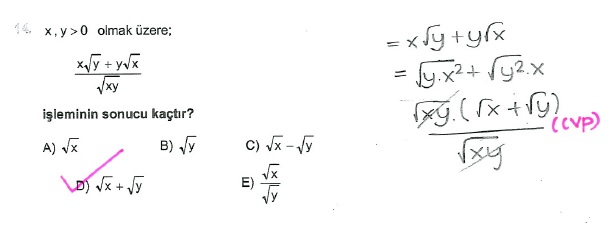 14. x, y > 0 olmak üzere;
x√y + y√x
√xy
işleminin sonucu kaçtır?
A) √x B) √y C) √x − √y
D) √x + √y E) √x / √y
= x√y + y√x
= √y.x² + √y².x
√xy.(√x + √y)
√xy
(CVP)